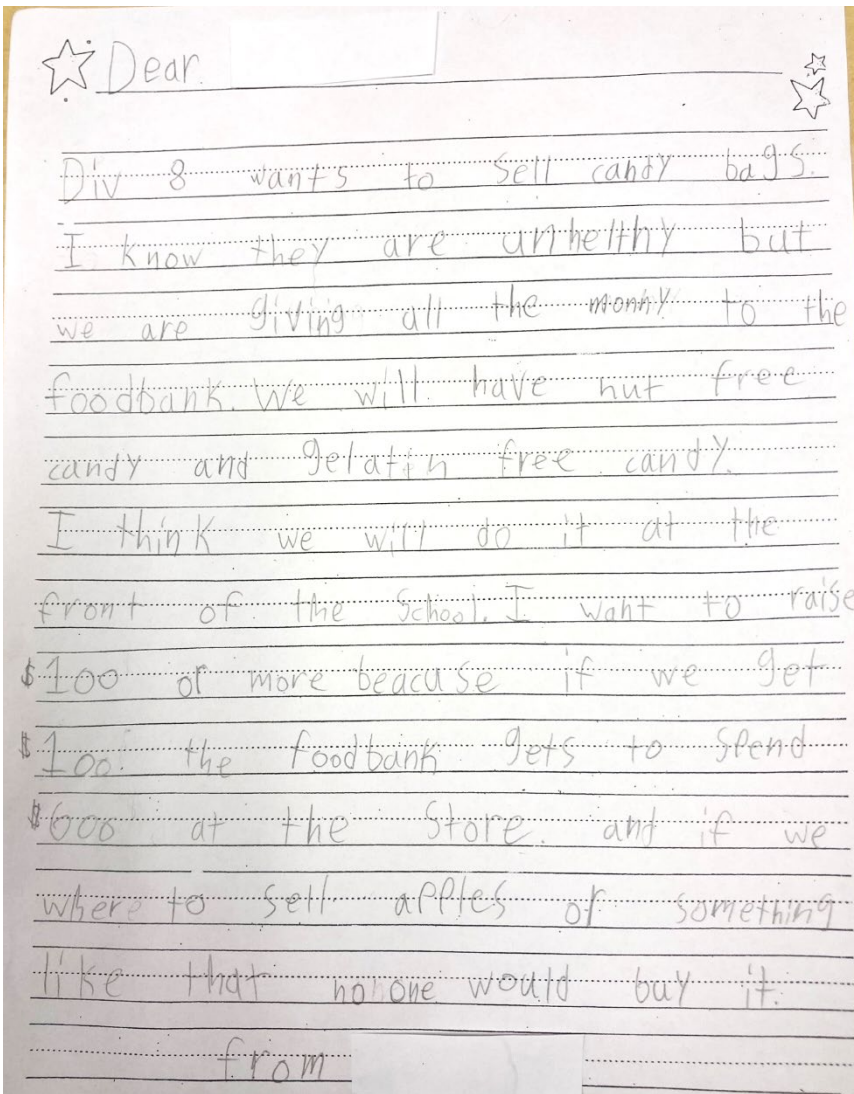 Dear
Div 8 wants to sell candy bags.
I know they are unhelthy but
we are giving all the monny to the
foodbank. We will have nut free
candy and gelatin free candy.
I think we will do it at the
front of the school. I want to raise
$100 or more beacuse if we get
$100 the foodbank gets to spend
$600 at the store. and if we
where to sell apples or something
like that no one would buy it.
from